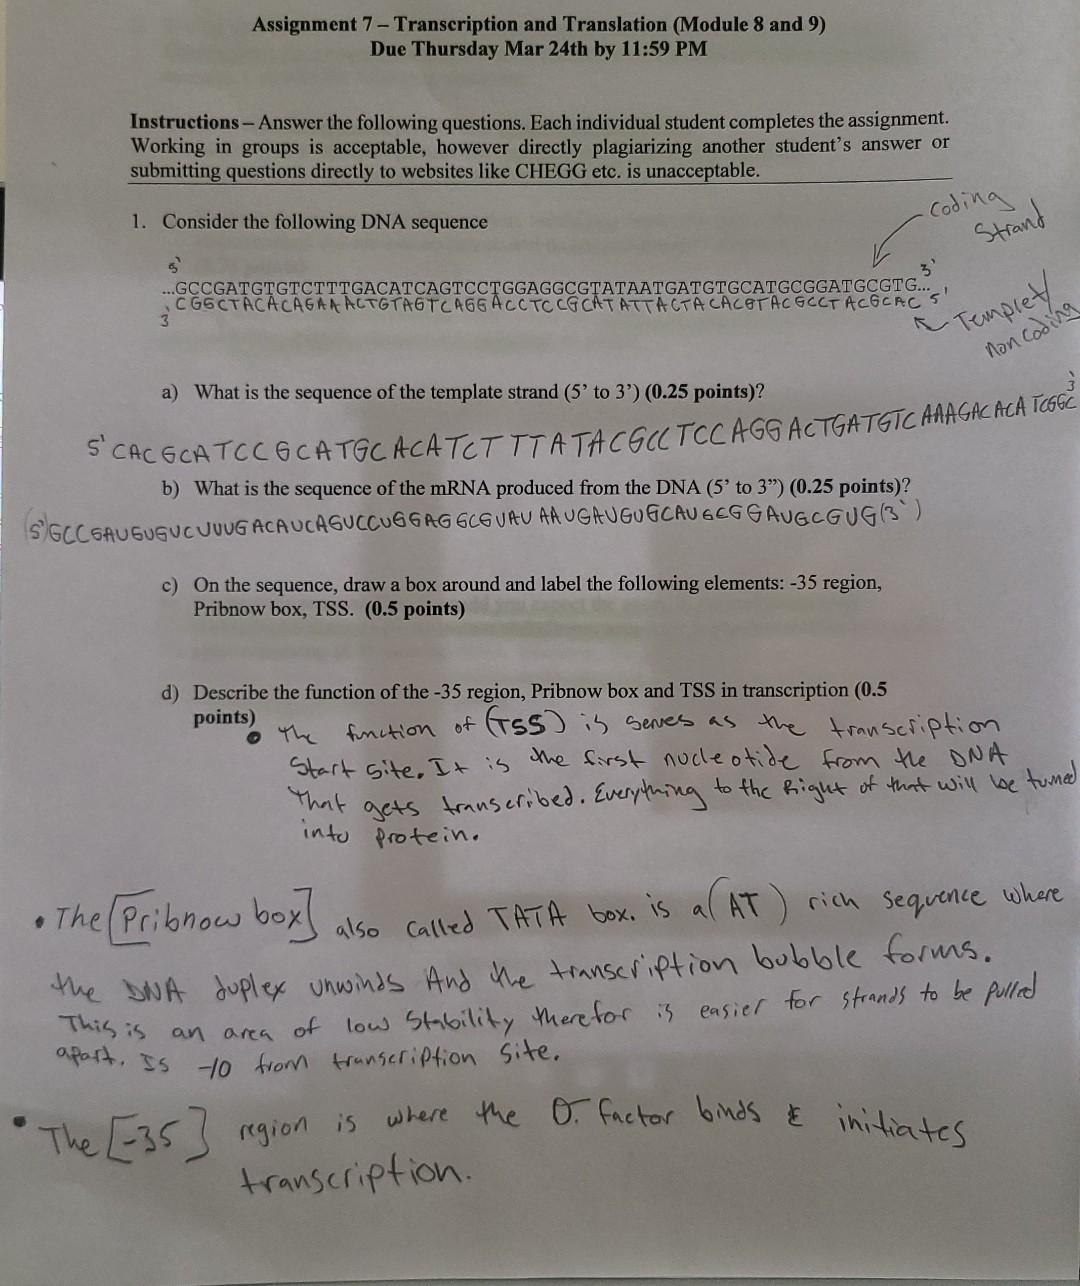 Assignment 7 – Transcription and Translation (Module 8 and 9)
Due Thursday Mar 24th by 11:59 PM
Instructions – Answer the following questions. Each individual student completes the assignment.
Working in groups is acceptable, however directly plagiarizing another student's answer or
submitting questions directly to websites like CHEGG etc. is unacceptable.
Coding
Strand
1. Consider the following DNA sequence
5' 3'
...GCCGATGTGTCTTTGACATCAGTCCTGGAGGCGTATAATGATGTGCATGCGGATGCGTG...
CGGCTACACAGAAACTGTAGTCAGGACCTCCGCATATTACTACACGTACGCCTACGCAC 5'
3
Templet/
Non coding
a) What is the sequence of the template strand (5' to 3') (0.25 points)?
5' CACGCATCCGCATGCACATCTTTATACGCCTCCAGGACTGATGTCAAAGACACATCGGC 3'
b) What is the sequence of the mRNA produced from the DNA (5' to 3") (0.25 points)?
(5')GCCGAUGUGUCUUUGACAUCAGUCCUGGAGGCGUAUAAUGAUGUGCAUGCGGAUGCGUG(3')
c) On the sequence, draw a box around and label the following elements: -35 region,
Pribnow box, TSS. (0.5 points)
d) Describe the function of the -35 region, Pribnow box and TSS in transcription (0.5
points)
• The function of (TSS) is serves as the transcription
Start site. It is the first nucleotide from the DNA
That gets transcribed. Everything to the Right of that will be turned
into protein.
• The [Pribnow box] also called TATA box. is a (AT) rich sequence where
the DNA duplex unwinds And the transcription bubble forms.
This is an area of low Stability therefor is easier for strands to be pulled
apart. Is -10 from transcription site.
• The [-35] region is where the σ factor binds & initiates
transcription.